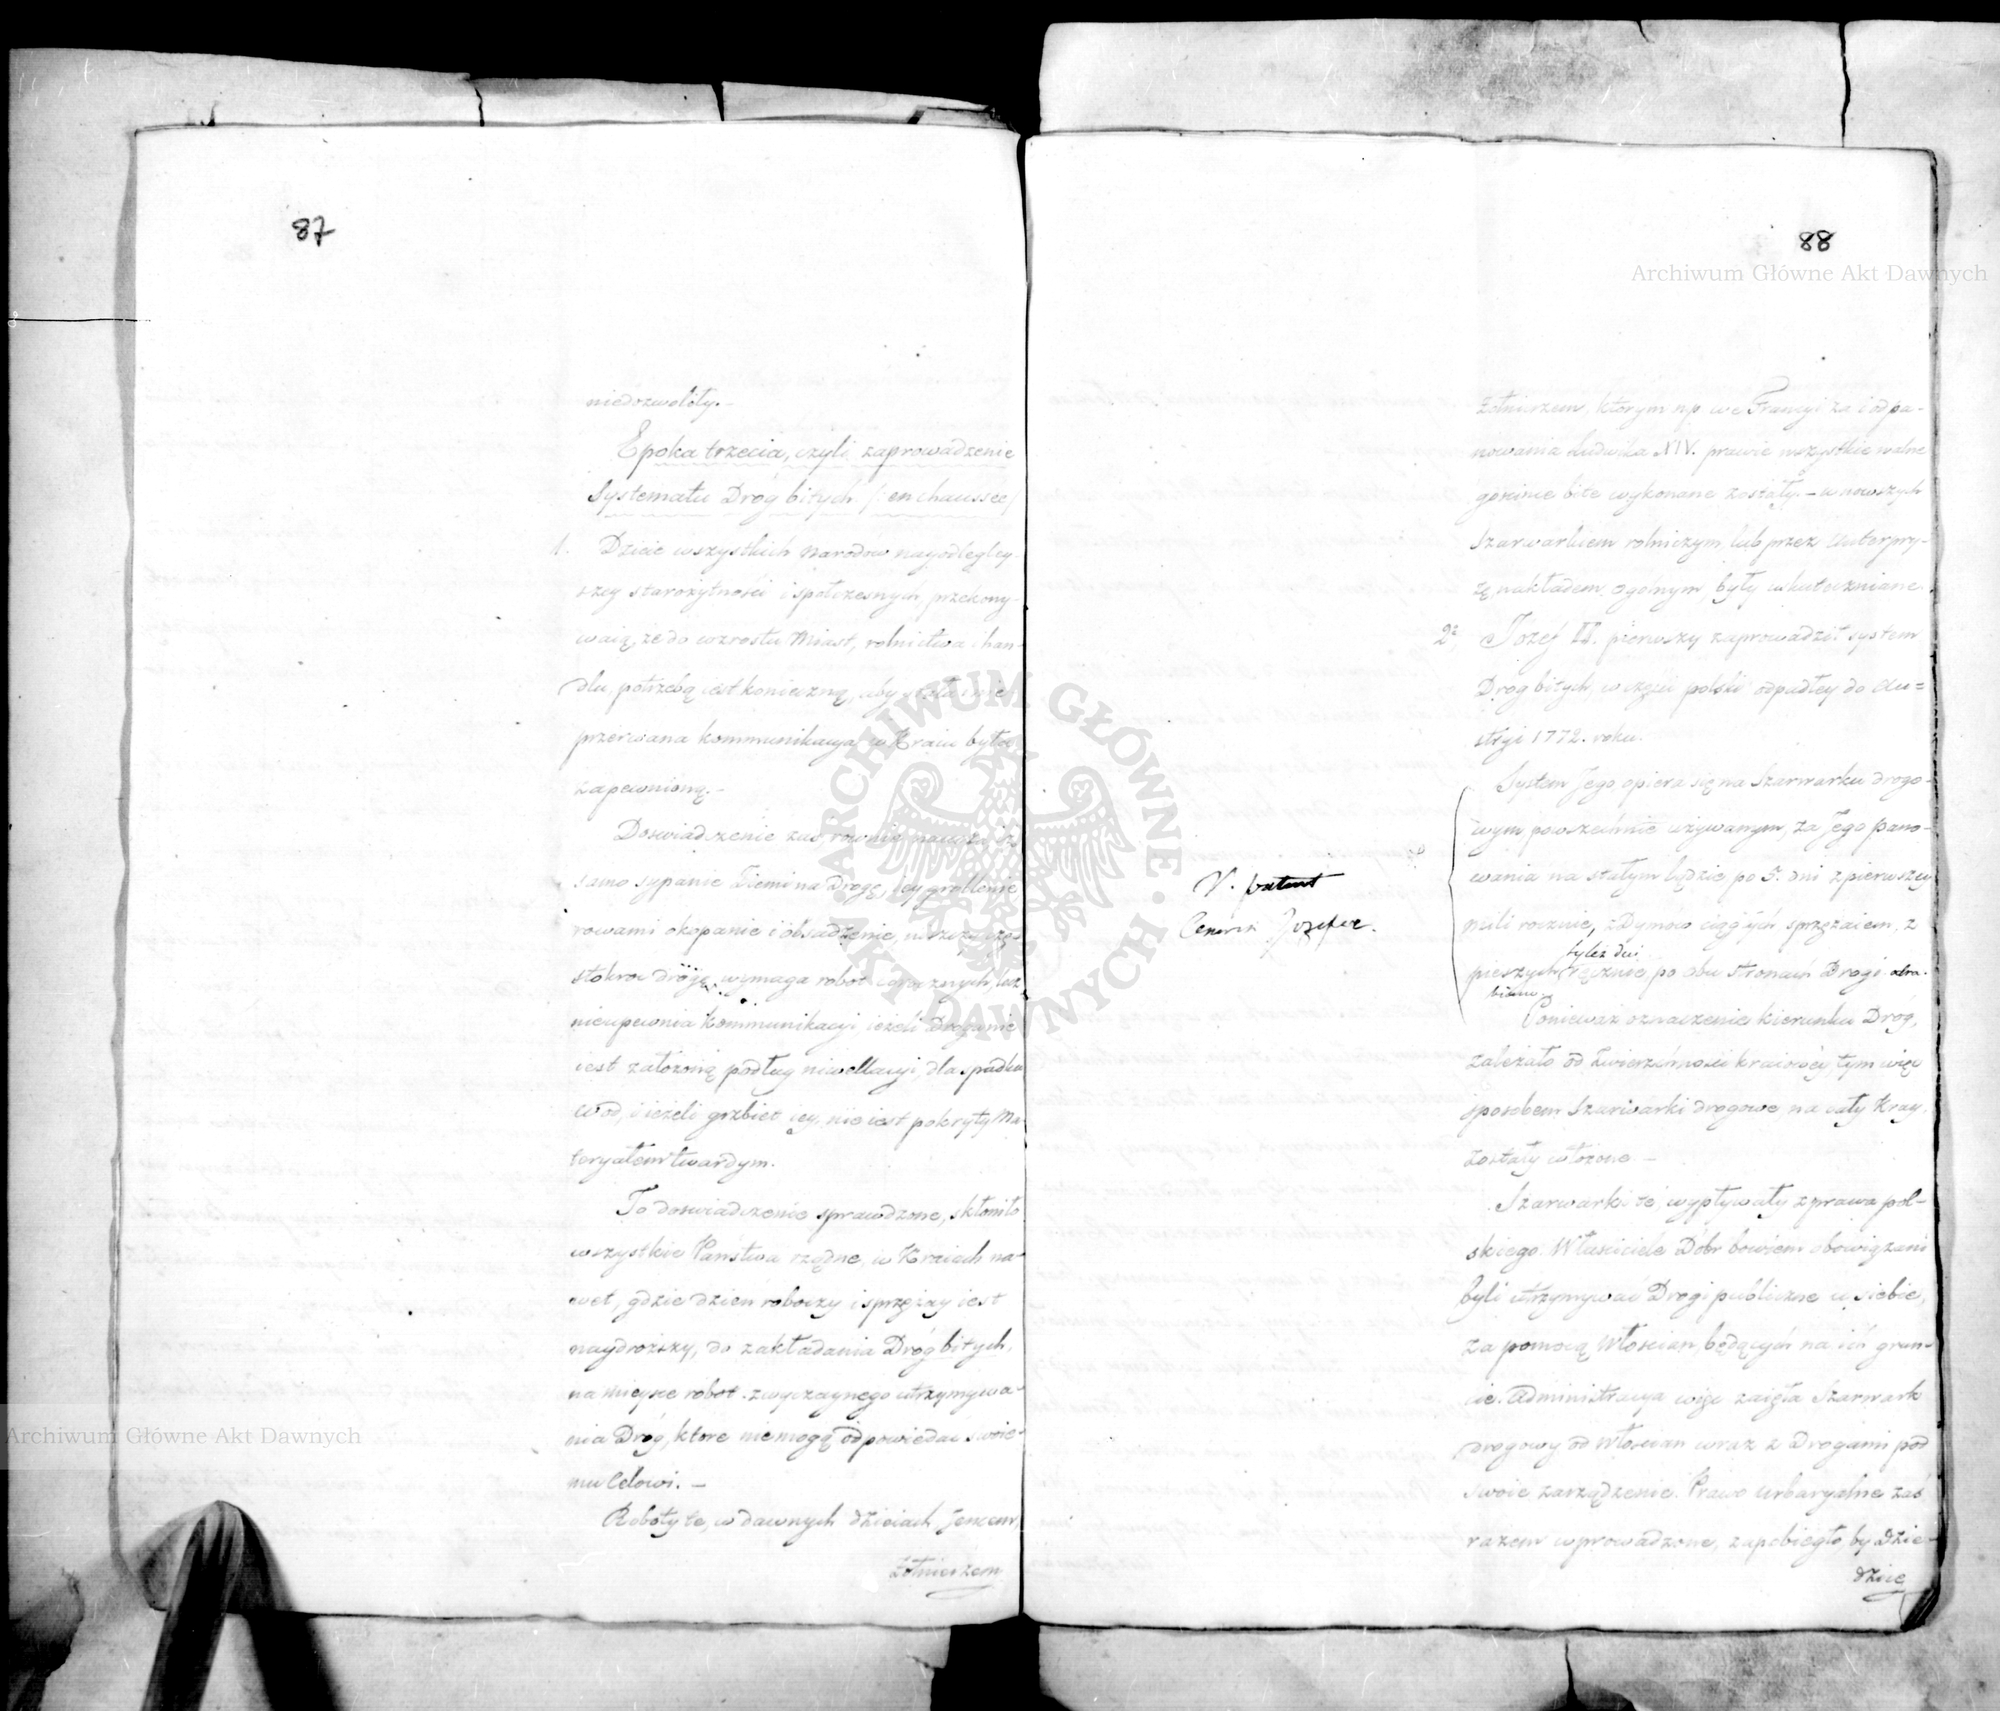 87
niedozwoliły. –
Epoka trzecia, czyli zaprowadzenie
Systematu Dróg bitych /: en chaussée /
1. Dzieie wszystkich narodów nayodległey-
szey starożytności i społczesnych, przekony-
waią, że do wzrostu Miast, rolnictwa i han-
dlu, potrzebą iest konieczną, aby stała i nie
przerwana kommunikacya w Kraiu była
zapewnioną. –
Doświadczenie zaś równie naucza, iż
samo sypanie Ziemi na Drogę, iey groblenie
rowami okopanie i obsadzenie,
stokroć wymaga robot lecz
nieupewnia kommunikacyi ieżeli Droga nie
iest założoną podług niwellacyi, dla spadku
wód, i ieżeli grzbiet iey, nie iest pokryty Ma-
teryałem twardym.
To doświadczenie sprawdzone, skłoniło
wszystkie Państwa rządne, w Kraiach na-
wet, gdzie dzień roboczy i sprzężny iest
naydroższy, do zakładania Dróg bitych,
na mieysce robot zwyczaynego utrzymywa-
nia Dróg, które nie mogą odpowiedać swoie-
mu Celowi. –
Roboty te, w dawnych dzieiach Jeńcem,
żołnierzem
88
Archiwum Główne Akt Dawnych
żołnierzem, którym np we Francyi za
nowania Ludwika XIV. prawie wszystkie walne
gościńce bite wykonane zostały. – w nowszych
Szarwarkiem rolniczym, lub przez Enterpry-
zę nakładem ogólnym, były uskuteczniane.
2. Jozef II. pierwszy zaprowadził system
Drog bitych, w części polski odpadłey do Au=
stryi 1772. roku.
System Jego opiera się na Szarwarku drogo-
wym powszechnie używanym, za Jego pano-
wania na stałym lądzie po 5. dni z pierwszey
mili rocznie, z Dymów ciągłych sprzężaiem, z
tyleż dni
pieszych ręcznie, po obu stronach Drogi odra-
biano.
V. patent
Cesarza Józefa.
Ponieważ oznaczenie kierunku Dróg,
zależało od Zwierzchności kraiowéy, tym więc
sposobem Szarwarki drogowe na cały Kray
zostały włożone –
Szarwarki te, wypływały z prawa pol-
skiego. Właściciele Dóbr bowiem obowiązani
byli utrzymywać Drogi publiczne u siebie,
za pomocą Włościan, będących na ich grun-
cie. Administracya więc zaięła Szarwark
drogowy od Włościan wraz z Drogami pod
swoie zarządzenie. Prawo urbaryalne zaś
razem wprowadzone, zapobiegło, by Dzie-
dzice
ARCHIWUM GŁÓWNE AKT DAWNYCH
Archiwum Główne Akt Dawnych